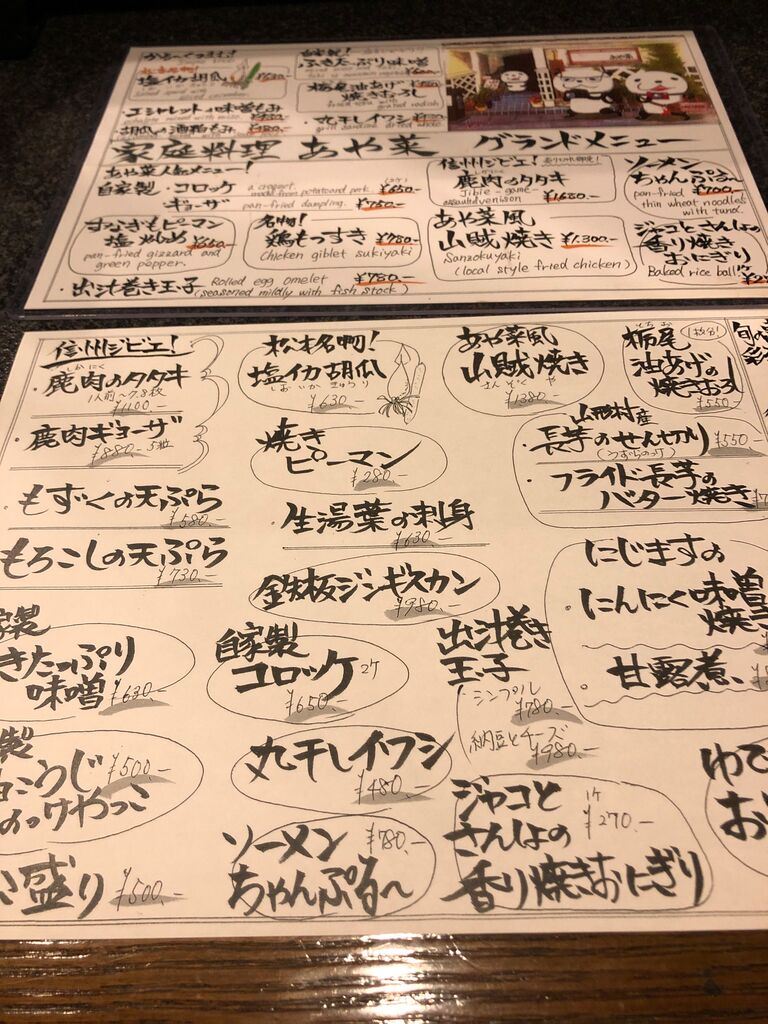 自家製!
ふきたっぷり味噌
塩イカ胡瓜
栃尾油あげ
焼きおろし
エシャレットの味噌もみ
丸干しイワシ
家庭料理 あや菜 グランドメニュー
あや菜人気メニュー!
自家製・コロッケ
¥650.-
ギョーザ
pan-fried dumpling.
¥750.-
信州ジビエ!
鹿肉のタタキ
Jibie-game-
¥1,680.-
ソーメン
ちゃんぷる〜
pan-fried ¥700.-
thin wheat noodles
with tuna.
すなぎもピーマン
塩炒め ¥660.-
pan-fried gizzard and
green pepper.
名物!
鶏もつすき ¥780.-
Chicken giblet sukiyaki
あや菜風
山賊焼き ¥1,300.-
Sanzokuyaki
(local style fried chicken)
ジャコとさんしょの
香り焼き
おにぎり
Baked rice ball
・出汁巻き玉子
Rolled egg omelet
(seasoned mildly with fish stock)
¥780.-
信州ジビエ!
・鹿肉のタタキ
しかにく
1人前〜7,8枚
¥1100.-
・鹿肉ギョーザ
¥880.- 5粒
もずくの天ぷら
¥580.-
もろこしの天ぷら
¥730.-
きたっぷり
味噌 ¥630.-
¥500.-
のっけやっこ
盛り ¥500.-
松本名物!
塩イカ胡瓜
しおいかきゅうり
¥630.-
焼き
ピーマン
¥280.-
生湯葉の刺身
¥630.-
鉄板ジンギスカン
¥980.-
自家製
コロッケ 2ケ
¥650.-
丸干しイワシ
¥480.-
ソーメン ¥780.-
ちゃんぷる〜
あや菜風
山賊焼き
さんぞくや
¥1380.-
出汁巻き
玉子
シンプル
¥780.-
納豆とチーズ
¥980.-
ジャコと
さんしょの
1ケ
¥270.-
香り焼きおにぎり
栃尾
とちお
(1枚分)
油あげの
焼きおろし
¥550.-
山形村産
・長芋のせん切り ¥550.-
(うずらのっけ)
・フライド長芋の
バター焼き
にじますの
・にんにく味噌
焼き
・甘露煮